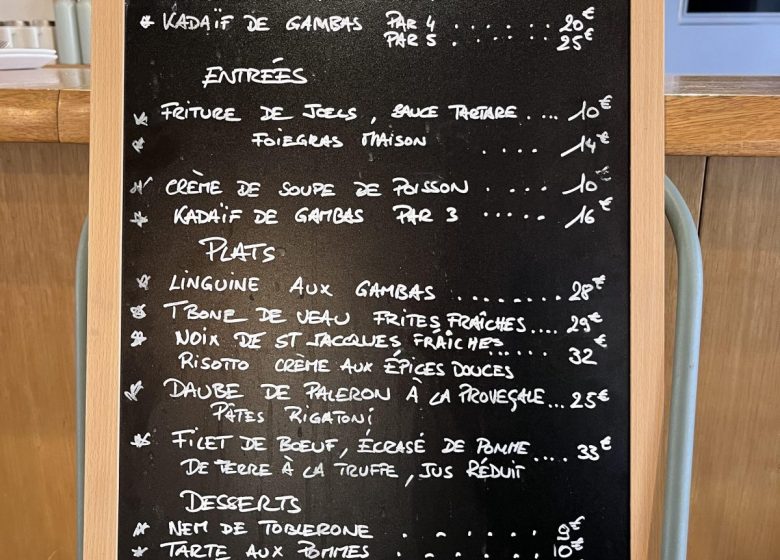 * KADAÏF DE GAMBAS PAR 4 ...... 20€
PAR 5 ...... 25€
ENTRÉES
* FRITURE DE JOELS, SAUCE TARTARE .... 10€
* FOIEGRAS MAISON .... 14€
* CRÈME DE SOUPE DE POISSON .... 10€
* KADAÏF DE GAMBAS PAR 3 ..... 16€
PLATS
* LINGUINE AUX GAMBAS ....... 28€
* T BONE DE VEAU FRITES FRAÎCHES .... 29€
* NOIX DE ST JACQUES FRAÎCHES ...... 32€
RISOTTO CRÈME AUX ÉPICES DOUCES
* DAUBE DE PALERON À LA PROVEÇALE ... 25€
PÂTES RIGATONI
* FILET DE BŒUF, ÉCRASÉ DE POMME .... 33€
DE TERRE À LA TRUFFE, JUS RÉDUIT
DESSERTS
* NEM DE TOBLERONE . . . . . 9€
* TARTE AUX POMMES . . . . . . 10€